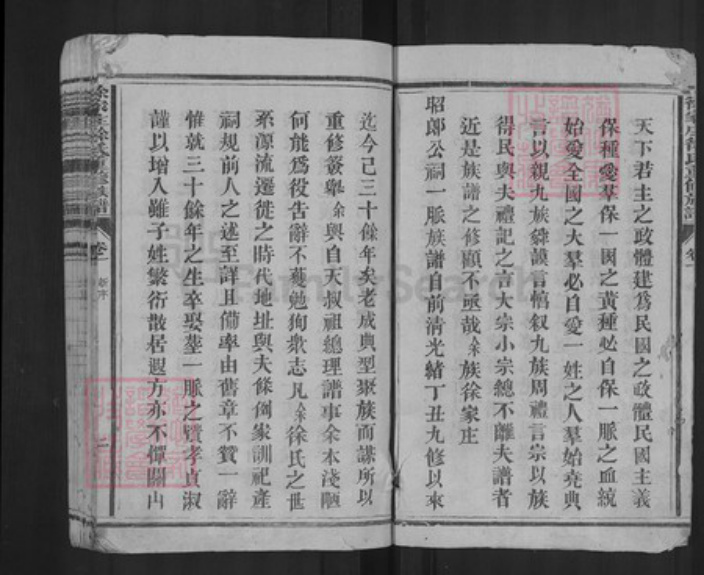 天下君主之政體建爲民國之政體民國主義
保種愛羣保一國之黃種必自保一脈之血統
始愛全國之大羣必自愛一姓之人羣始堯典
言以親九族謨言惇叙九族周禮言宗以族
得民與夫禮記之言大宗小宗總不離夫譜者
近是族譜之修顧不亟哉余族徐家庄
昭郎公祠一脈族譜自前清光緒丁丑九修以來
迄今已三十餘年矣老成典型聚族而謀所以
重修簽舉余與自天叔祖總理譜事余本淺陋
何能爲役吿辭不蒦勉狥衆志凡余徐氏之世
系源流遷徙之時代地址與夫條例家訓祀產
祠規前人之述至詳且備率由舊章不贊一辭
惟就三十餘年之生卒娶塟一脈之賢孝貞淑
謹以增入雖子姓繁衍散居遐方亦不憚關山
徐家庄徐氏重修族譜
卷一
新序
二
FamilySearch